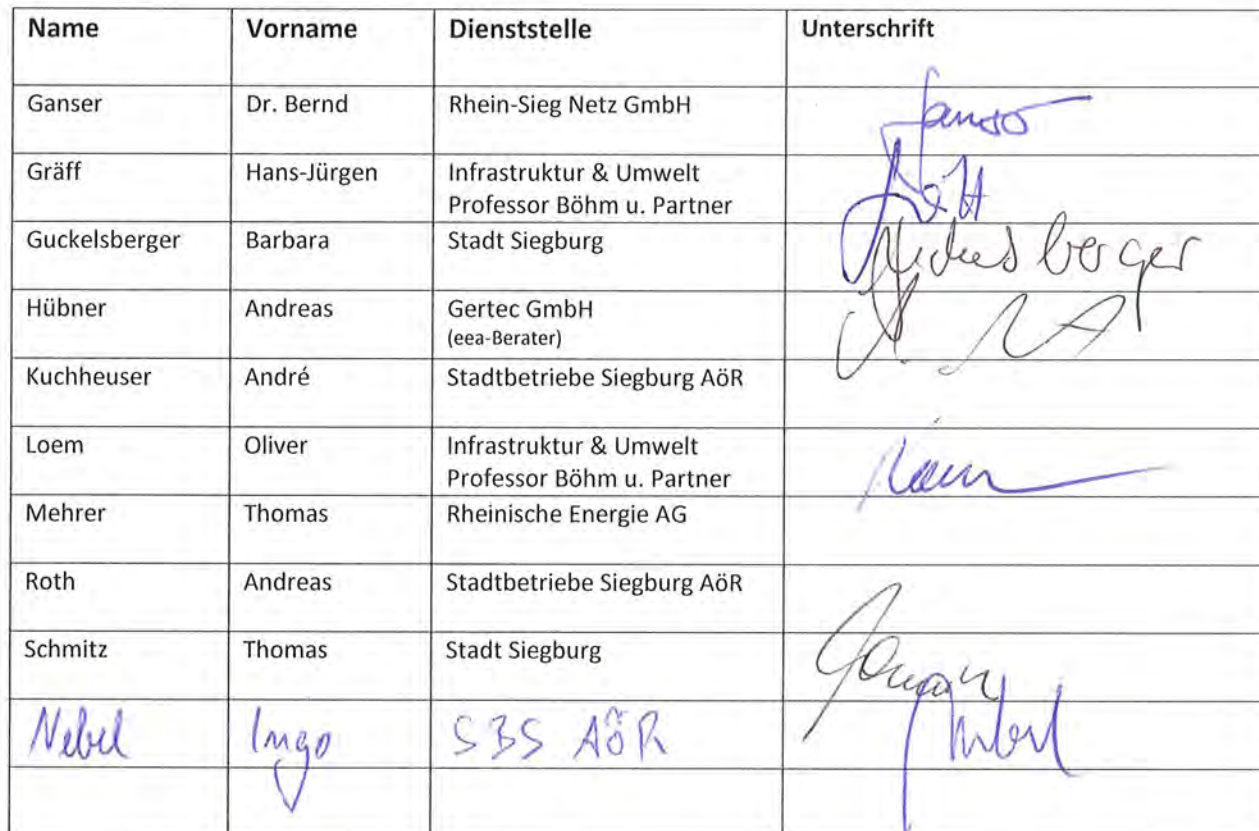 Name Vorname Dienststelle Unterschrift
Ganser Dr. Bernd Rhein-Sieg Netz GmbH
Gräff Hans-Jürgen Infrastruktur & Umwelt
Professor Böhm u. Partner
Guckelsberger Barbara Stadt Siegburg
Hübner Andreas Gertec GmbH
(eea-Berater)
Kuchheuser André Stadtbetriebe Siegburg AöR
Loem Oliver Infrastruktur & Umwelt
Professor Böhm u. Partner
Mehrer Thomas Rheinische Energie AG
Roth Andreas Stadtbetriebe Siegburg AöR
Schmitz Thomas Stadt Siegburg
Nebel Ingo SBS AöR